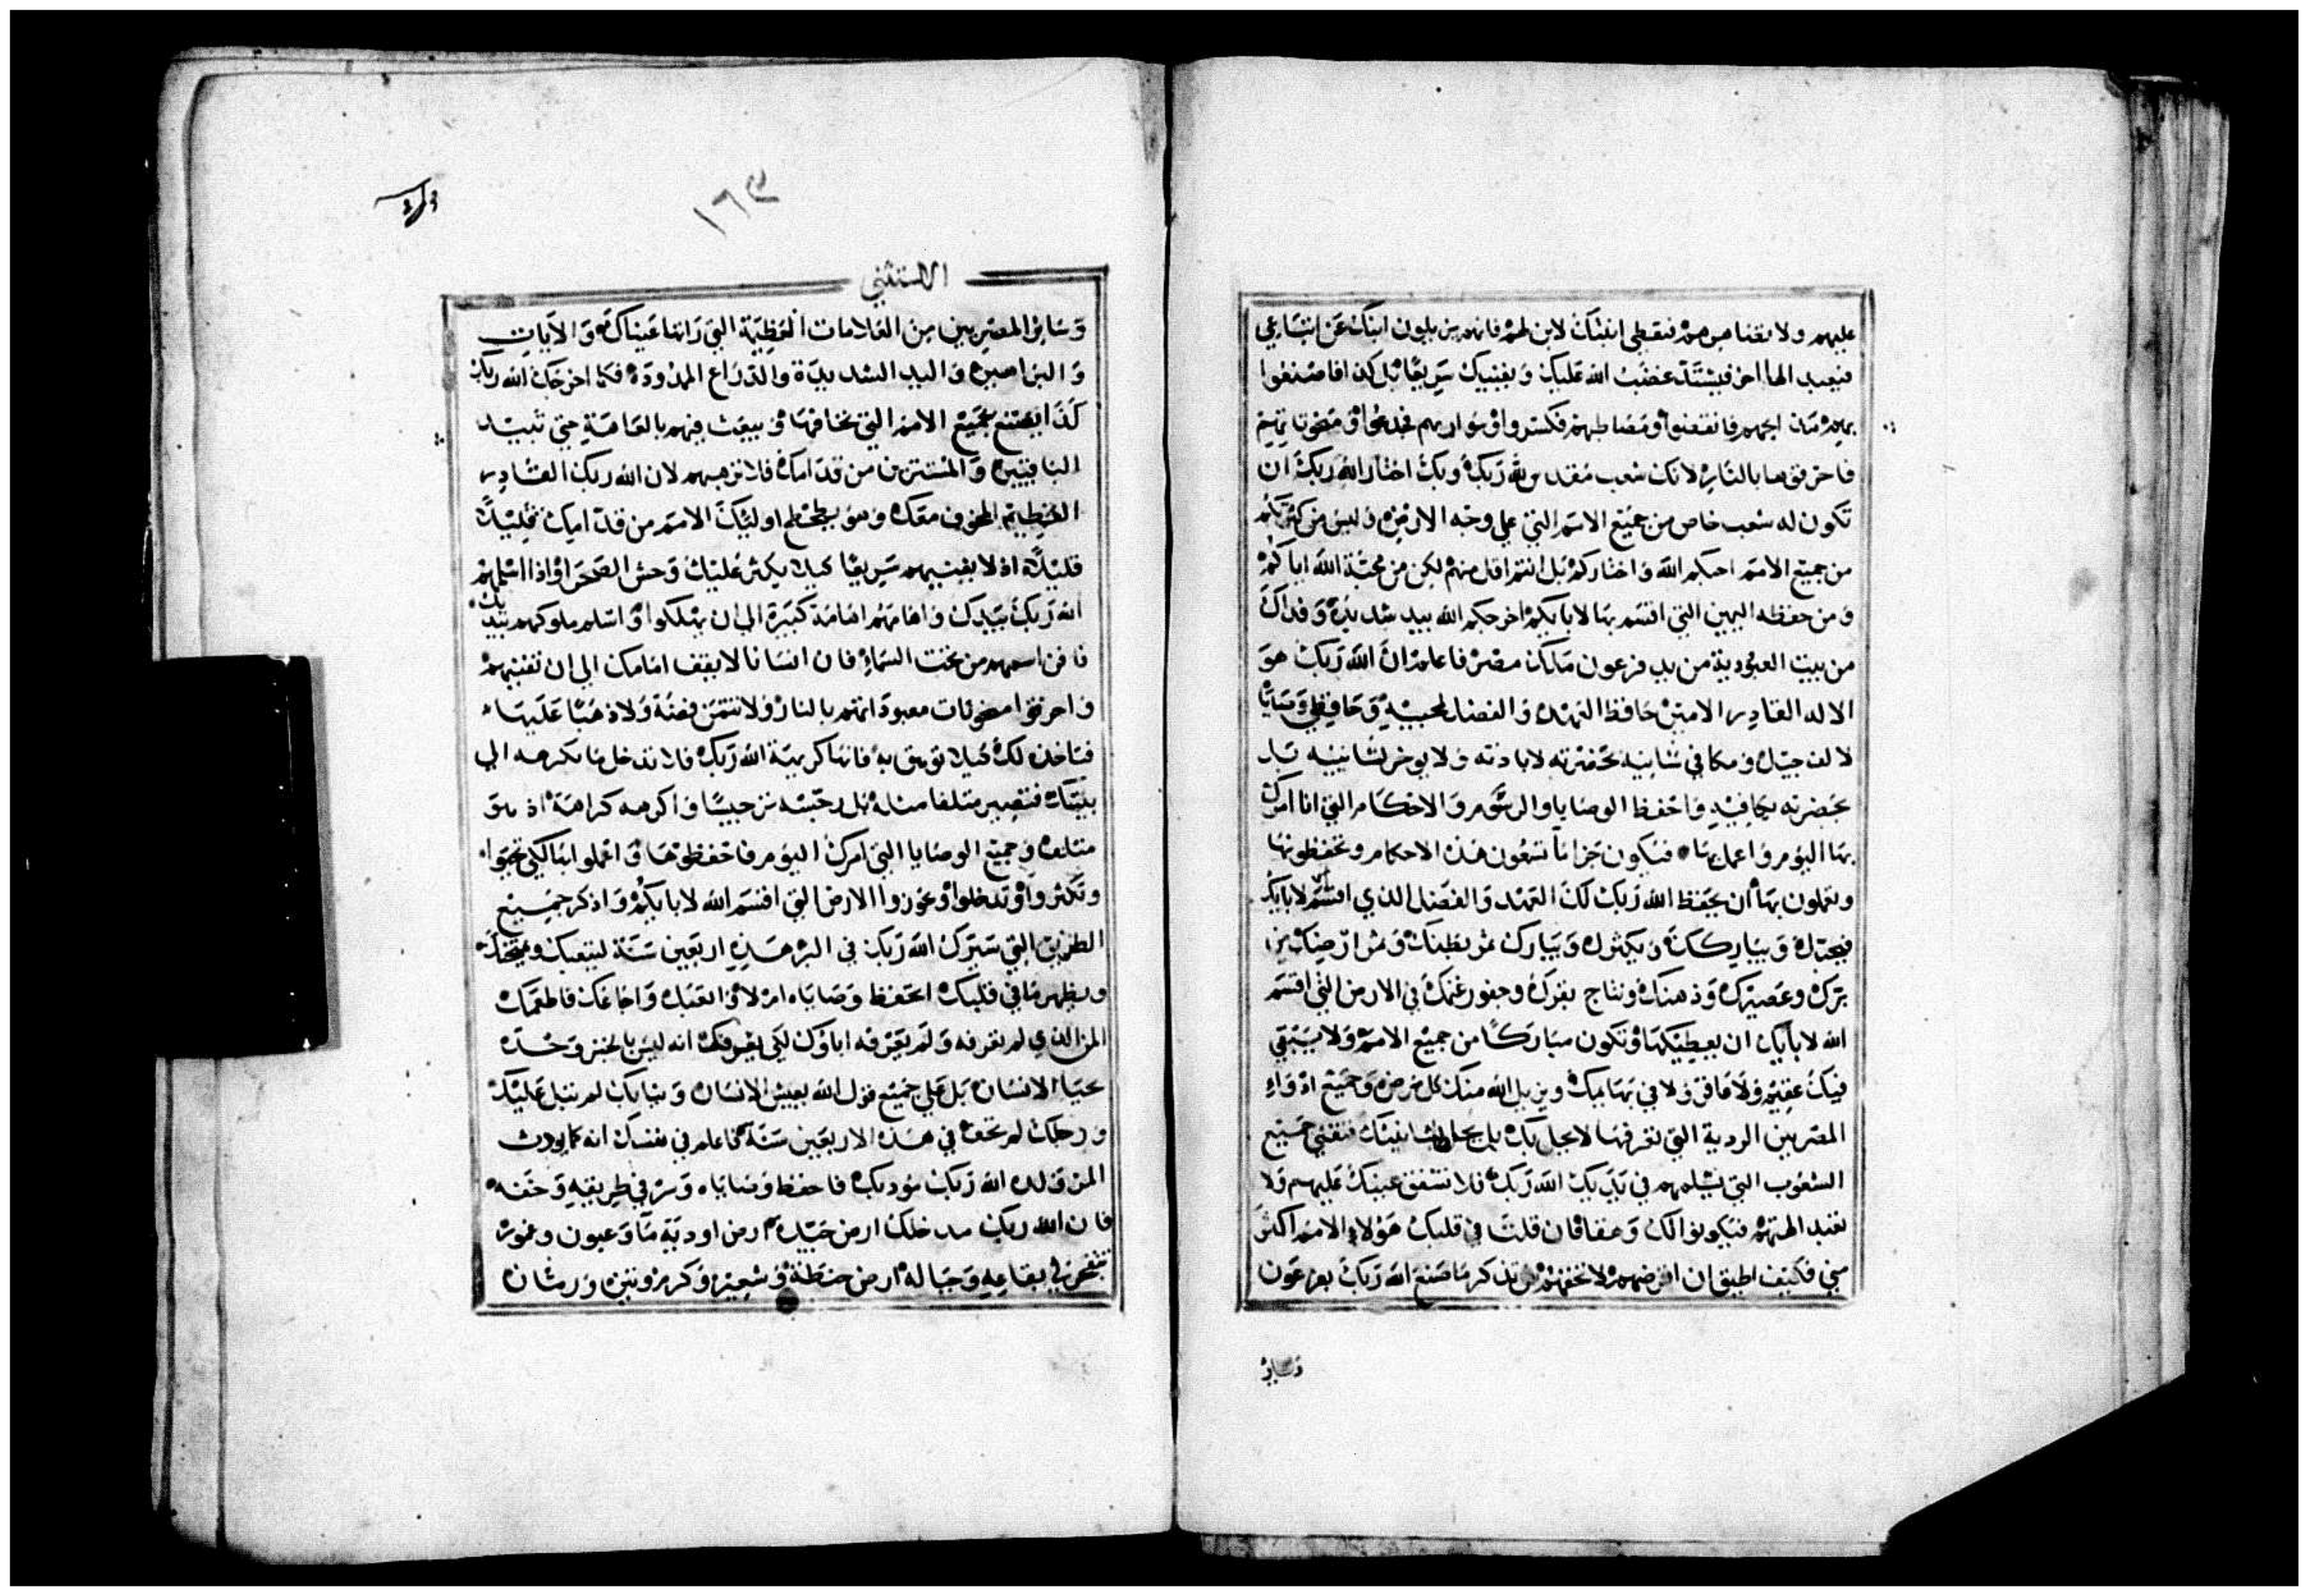 عليهم ولا تصاهرهم فتعطي ابنتك لابن لهم فانهم يزيلون ابنك عن اتباعي
فيعبد الها اخر فيشتد غضب الله عليك ويفنيك سريعا بل كذا فاصنعوا
بهم مذابحهم فانقضوا ومصاطبهم فكسروا وسواريهم فجدعوا ومنحوتاتهم
فاحرقوها بالنار لانك شعب مقدس لله ربك وبك اختار الله ربك ان
تكون له شعب خاص من جميع الامم التي على وجه الارض وليس من كثرتكم
من جميع الامم احبكم الله واختاركم بل انتم اقل منهم لكن من محبة الله اياكم
ومن حفظه اليمين التي اقسم بها لابايكم اخرجكم الله بيد شديدة وفداك
من بيت العبودية من يد فرعون مالك مصر فاعلم ان الله ربك هو
الاله القادر الامين حافظ العهد والفضل لمحبيه وحافظي وصاياه
لالف جيل ومكافي شانيه بحضرته لابادته ولا يوخر لشانيه بل
بحضرته يكافيه فاحفظ الوصايا والرسوم والاحكام التي انا امرك
بها اليوم واعمل بها فيكون جزا ما تسمعون هذه الاحكام وتحفظونها
وتعملون بها ان يحفظ الله ربك لك العهد والفضل الذي اقسم لابايك
فيحبك ويباركك ويكثرك ويبارك ثمر بطنك وثمر ارضك من
برك وعصيرك ودهنك ونتاج بقرك وجفور غنمك في الارض التي اقسم
الله لابايك ان يعطيكها وتكون مباركا من جميع الامم ولا يبقى
فيك عقيم ولا عاقر ولا في بهايمك ويزيل الله منك كل مرض وجميع ادواء
المصريين الردية التي تعرفها لا يحل بك بل يحلها بشانيك فتفني جميع
الشعوب التي يسلمهم في يديك الله ربك فلا تشفق عينك عليهم ولا
تعبد الهتهم فيكونوا لك وهقا فان قلت في قلبك هولاء الامم اكثر
مني فكيف اطيق ان اقرضهم لا تخفهم بل تذكر ما صنع الله ربك بفرعون
وساير
١٦٤
الاستثني
وساير المصريين من العلامات العظيمة التي راتها عيناك والايات
والبراهين واليد الشديدة والذراع الممدودة فكما اخرجك الله ربك
كذا يصنع بجميع الامم التي تخافها ويبعث فيهم بالعاهة حتى تبيد
الباقيين والمستترين من قدامك فلا ترهبهم لان الله ربك القادر
العظيم المخوف معك وهو يطحطح اوليك الامم من قدامك قليلا
قليلا اذ لا يفنيهم سريعا كيلا يكثر عليك وحش الصحرا واذا اسلمهم
الله ربك بيدك وهامهم هامة كبيرة الى ان يهلكوا واسلم ملوكهم بيدك
فافن اسمهم من تحت السماء فان انسانا لا يقف امامك الي ان تفنيهم
واحرقوا منحوتات معبوداتهم بالنار ولا تتمن فضة ولا ذهبا عليها
فتاخذه لك كيلا توهق به فانها كريهة الله ربك فلا تدخل ما يكرهه الي
بيتك فتصير متلفا مثله بل رجسه ترجيسا واكرهه كراهة اذ هو
متلف وجميع الوصايا التي امرك اليوم فاحفظوها واعملوا بها لكي تحيوا
وتكثروا وتدخلوا وتحوزوا الارض التي اقسم الله لابايكم واذكر جميع
الطريق التي سيرك الله ربك في البر هذه اربعين سنة ليتعبك ويمتحنك
ويظهر ما في قلبك اتحفظ وصاياه ام لا واتعبك واجاعك فاطعمك
المن الذي لم تعرفه ولم يعرفه اباوك لكي يعرفك انه ليس بالخبز وحده
يحيا الانسان بل على جميع قول الله يعيش الانسان وثيابك لم تبل عليك
ورجلك لم تحف في هذه الاربعين سنة فاعلم في نفسك انه كما يودب
المرو ولده الله ربك مودبك فاحفظ وصاياه وسر في طريقه وخفه
فان الله ربك مدخلك ارض جيدة ارض اودية ما وعيون وغمور
تتفجر في بقاعه وجباله ارض حنطة وشعير وكرم وتين ورمان